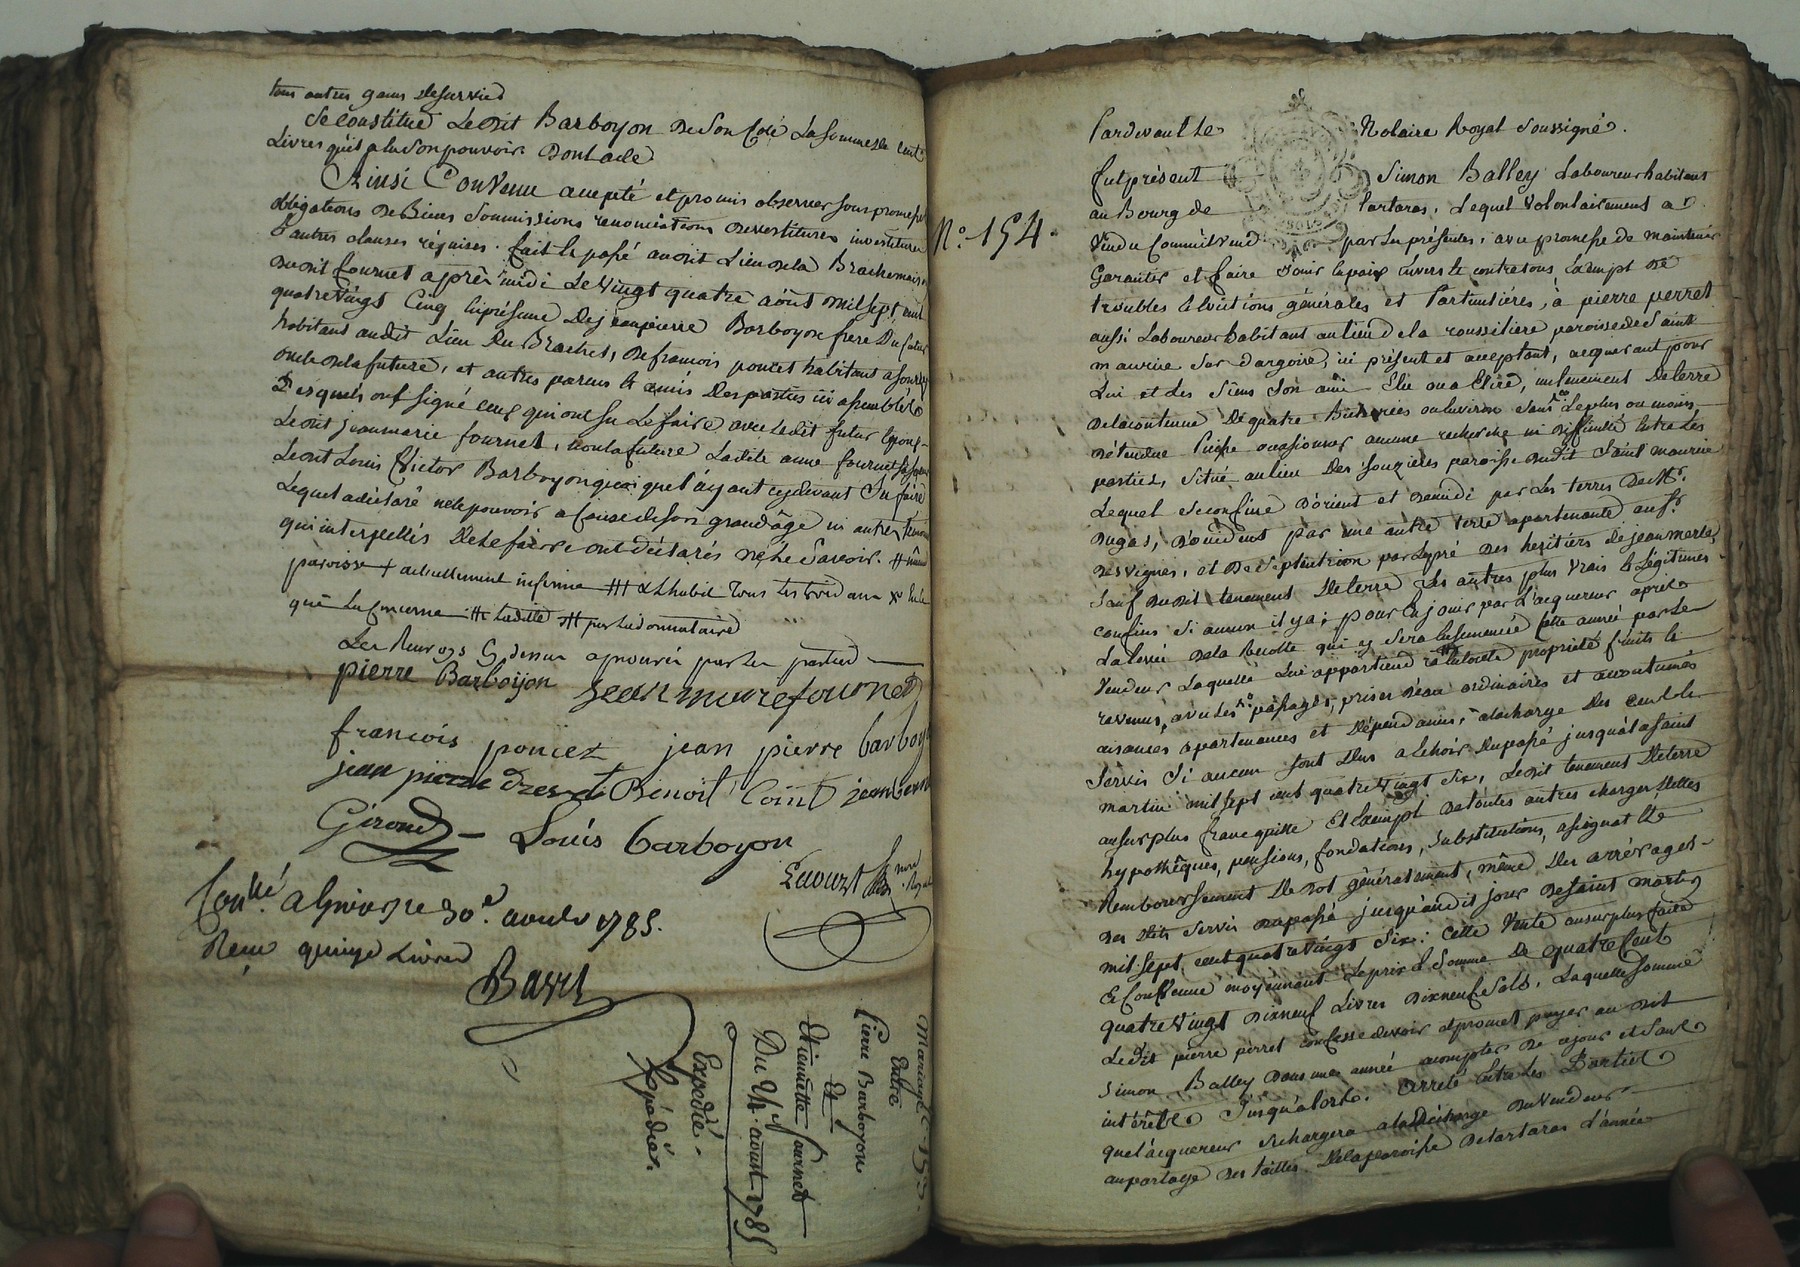 tous autres gains de survie
Se constitue Ledit Barboyon de son Coté La somme de cent
Livres qu'il a la son pouvoir. Dont acte
Ainsi Convenu accepté et promis observer sous promesses
obligations de Biens Soumissions renonciations devestitures investitures
& autres clauses réquises. fait & passé audit Lieu de la Brachet maison
dudit fournet après midi Le vingt quatre aôut mil sept cent
quatre vingt Cinq en présence de jean pierre Barboyon frere du futur
habitant audit Lieu du Brachet, de francois poncet habitant a
oncle de la future, et autres parens & amis des parties ici assemblés
Desquels ont signé ceux qui ont su le faire avec ledit futur Epoux
Ledit jean marie fournet, non la future Ladite anne fournet
Ledit Louis Victor Barboyon quoi que l'ayant cy devant Su faire
Lequel a déclaré ne le pouvoir a Cause de son grand âge ni autres témoins
qui interpellés de le faire ont déclarés ne le Savoir. #
paroisse + actuellement infirme ## & L'habit Tous Les trois ans
que La Concerne ## Ladite ## par Le donnataire
Les Renvoys Cy dessus aprouvés par les parties
pierre Barboyon jean marie fournet
francois poncet jean pierre barboyon
jean pierre Benoit Coint jean
Giroud Louis barboyon
not. Royal
Con.lé a 30.e aoust 1785.
Recu quinze Livres
Mariage C. 153.
Entre
Pierre Barboyon
Et
Etiennette fournet
Du 24 aoust 1785
Expedié.
Expédié.
N.º 154.
Pardevant Le Notaire Royal Soussigné.
fut présent Simon Balley Laboureur habitant
au Bourg de Tartaras, Lequel volontairement a
vendu Comme il vend par les présentes, avec promesse de maintenir
Garantir et faire Jouir en paix Envers & contre tous Exempt de
troubles & évictions générales et Particulières, à pierre perret
aussi Laboureur habitant au lieu de la roussiliere paroisse de Saint
maurice Sur dargoire, ici présent et acceptant, acquerant pour
Lui et Les Siens Son ami Elu ou a Elire, un tenement de terre
de la contenue de quatre Bicherées ou Environ Sans que Le plus ou moins
d'étendue Puisse ocasionner aucune recherche ni difficulté Entre Les
parties, Situé au lieu des Souzieres paroisse dudit Saint maurice
Lequel Se confine d'orient et de midi par Les terres de M.r
Dugas, d'occident par une autre terre apartenante au S.r
Desvignes, et de septentrion par Le pré des heritiers de jean merle,
Sauf dudit tenement de terre Les autres plus vrais & Légitimes
confins Si aucun il y a; pour En jouir par L'acquereur après
La Levée de la recolte qui y Sera Ensemencée cette année par Le
Vendeur Laquelle Lui appartiendra En toute propriété fruits &
revenus, avec Les passages, prises d'eau ordinaires et accoutumés
aisances apartenances et dépendances, a la charge des cens &
Servis Si aucun Sont dus a Echoir du passé jusqu'à la Saint
martin mil sept cent quatre vingt Six, Ledit tenement de terre
au surplus franc quitte Et Exempt de toutes autres charges dettes
hypothèques, pensions, fondations, Substitutions, assignat &
Remboursement de dot généralement, même des arrérages
Des dits Servis du passé jusqu'audit jour de Saint martin
mil sept cent quatre vingt Six: Cette Vente au surplus faite
& Convenue moyennant Le prix & Somme de quatre Cent
quatre vingt dix neuf Livres dix neuf Sols, Laquelle Somme
Ledit pierre perret Confesse devoir et promet payer au dit
Simon Balley Dans une année a compter de ce jour et Sans
intérêt Jusqu'alors. arreté Entre Les Parties
que l'acquereur Se chargera a la décharge du vendeur
au partage des tailles de la paroisse de tartaras d'année